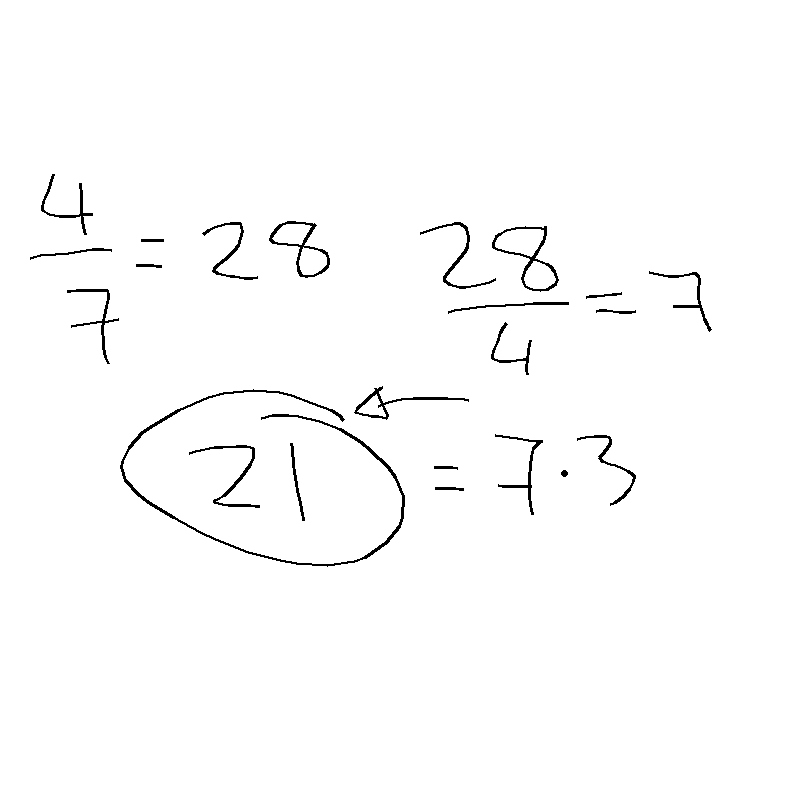 4/7 = 28 28/4 = 7
21 = 7·3